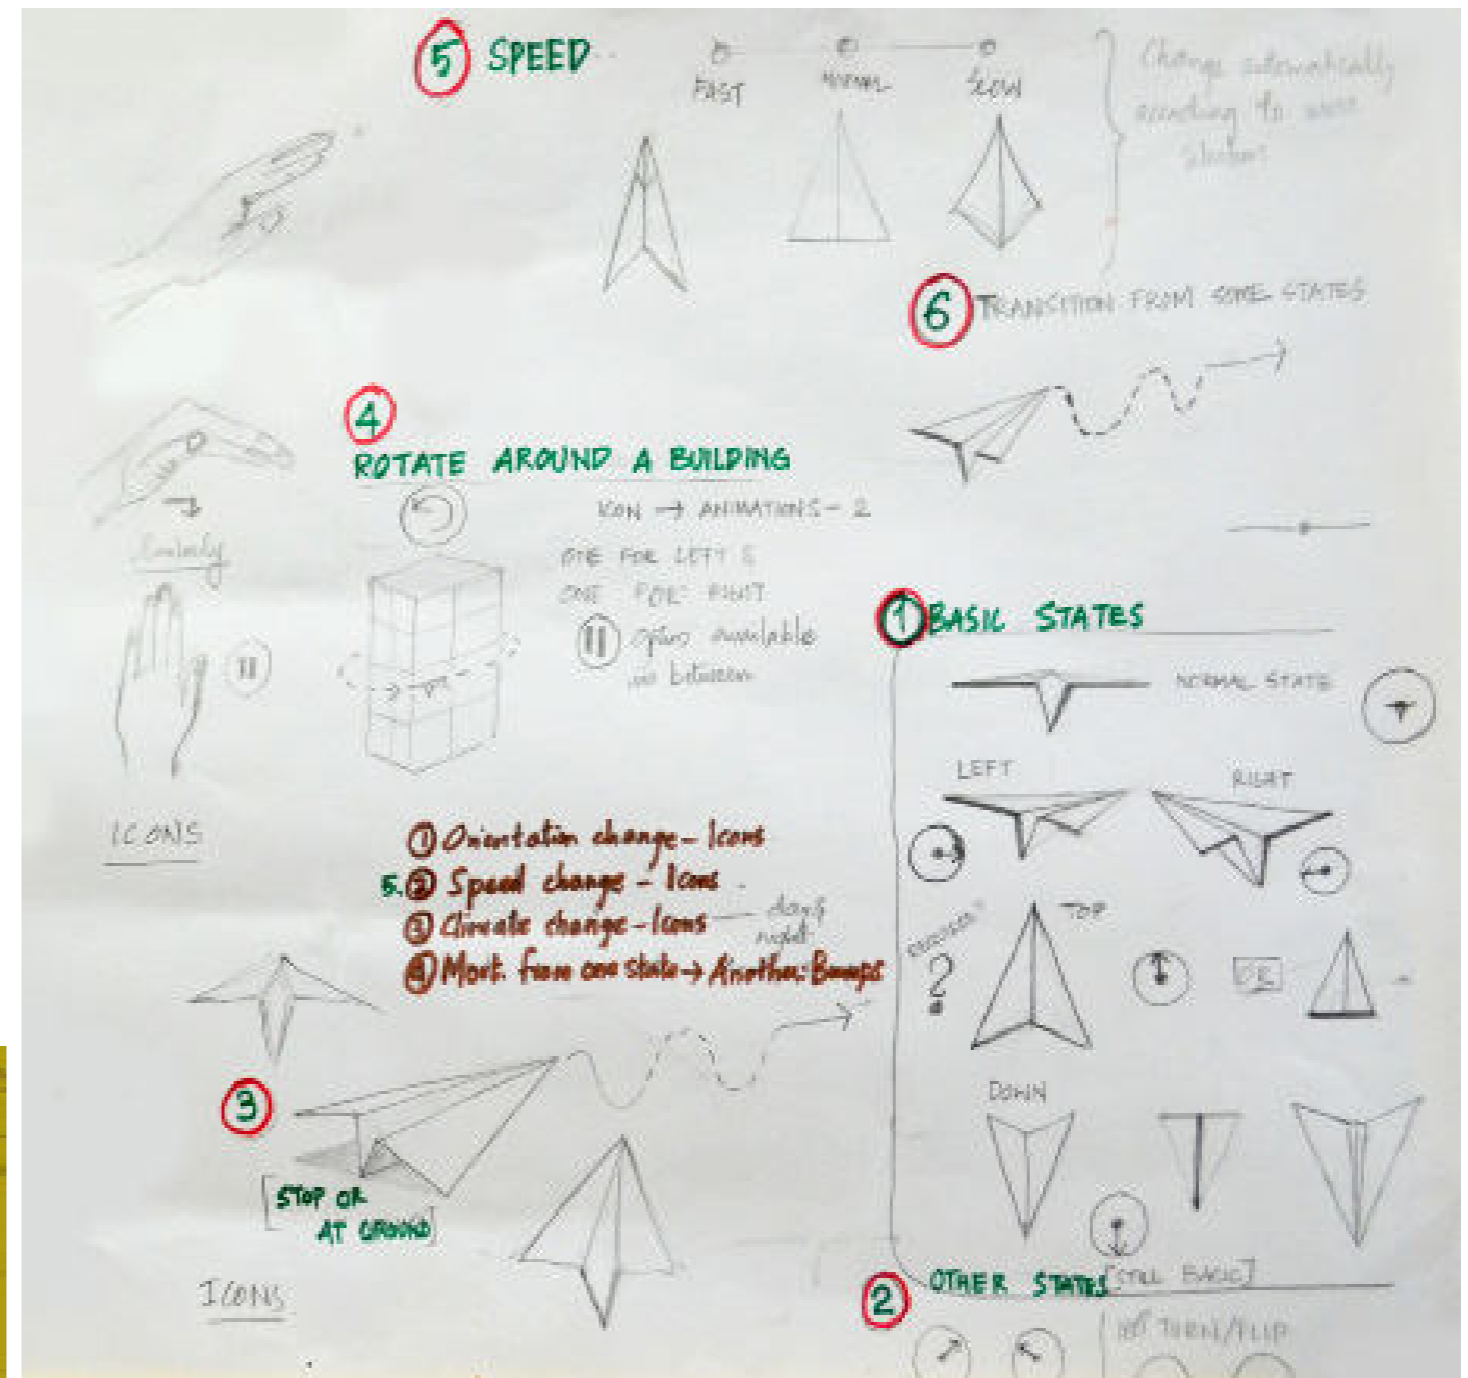 5 SPEED
FAST
NORMAL
SLOW
Change automatically
according to
6 TRANSITION FROM SOME STATES
4
ROTATE AROUND A BUILDING
ICON → ANIMATIONS - 2
ONE FOR LEFT &
ONE FOR RIGHT
option available
in between
ICONS
1 Orientation change - Icons
5. 2 Speed change - Icons
3 Climate change - Icons — day &
night
4 Mort. from one state → Another: Bumps
3
[STOP OR
AT GROUND]
ICONS
1 BASIC STATES
NORMAL STATE
LEFT
RIGHT
TOP
?
OR
DOWN
2 OTHER STATES [STILL BASIC]
TURN/FLIP